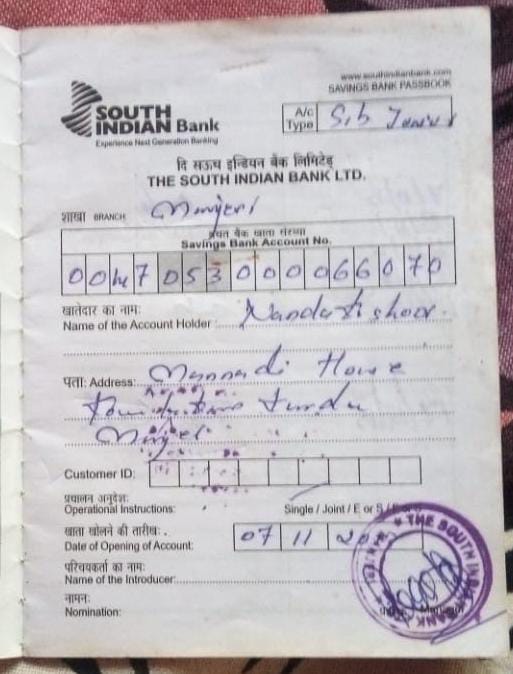 www.southindianbank.com
SAVINGS BANK PASSBOOK
SOUTH
INDIAN Bank
Experience Next Generation Banking
A/c Type S.b
दि साउथ इन्डियन बैंक लिमिटेड्
THE SOUTH INDIAN BANK LTD.
शाखा BRANCH Manjeri
बचत बैंक खाता संख्या
Savings Bank Account No.
0047053000066070
खातेदार का नाम:
Name of the Account Holder : Nandakishoor.
पता: Address: Mannadi House
Manjeri
Customer ID:
प्रचालन अनुदेश:
Operational Instructions: Single / Joint / E or S /
खाता खोलने की तारीख:
Date of Opening of Account: 07 11 20
परिचयकर्ता का नाम:
Name of the Introducer:
नामन:
Nomination: Manager
THE SOUTH INDIAN BANK